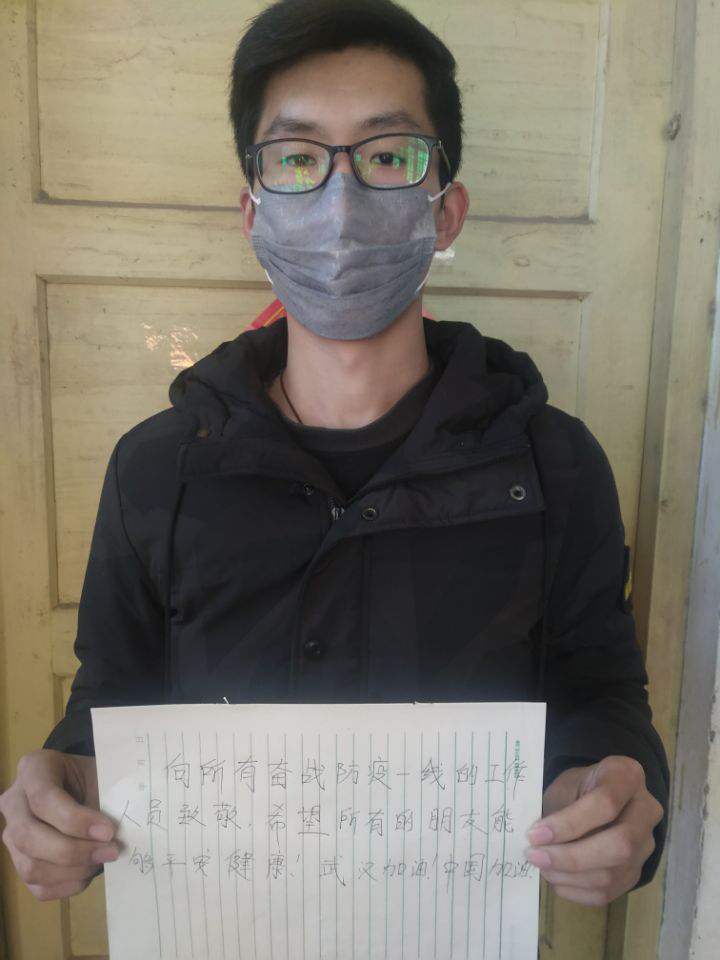 向所有奋战防疫一线的工作
人员致敬,希望所有的朋友能
够平安健康!武汉加油!中国加油!